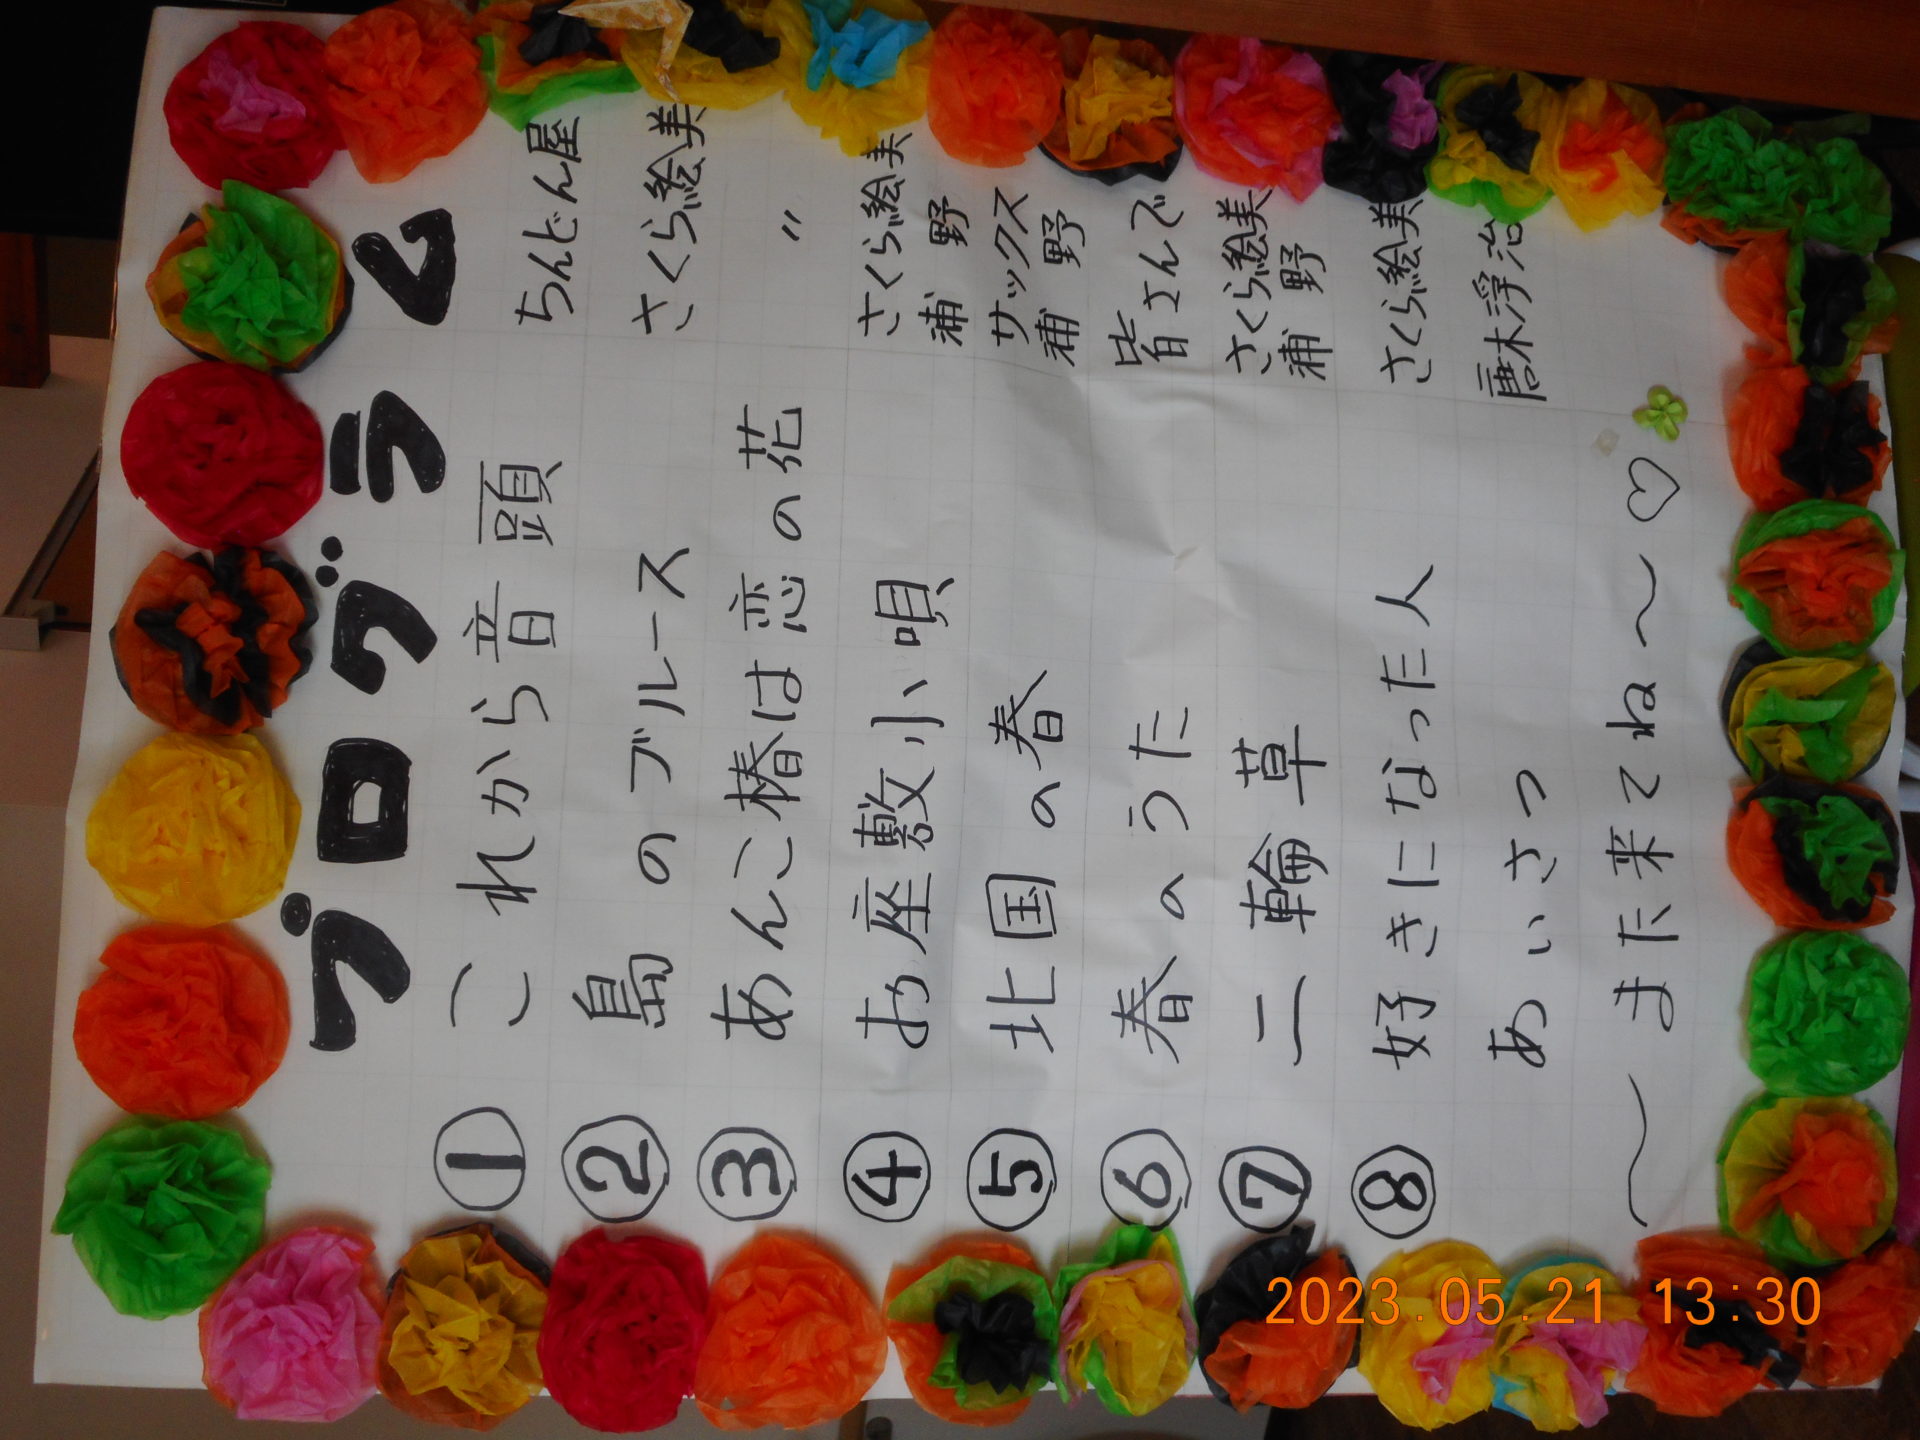 プログラム
① これから音頭 ちんどん屋
② 島のブルース さくら絵美
③ あんこ椿は恋の花 〃
④ お座敷小唄 さくら絵美
浦野
⑤ 北国の春 サックス
浦野
⑥ 春のうた 皆さんで
⑦ 二輪草 さくら絵美
浦野
⑧ 好きになった人 さくら絵美
あいさつ 唐木淳治
〜また来てね〜♡
2023.05.21 13:30